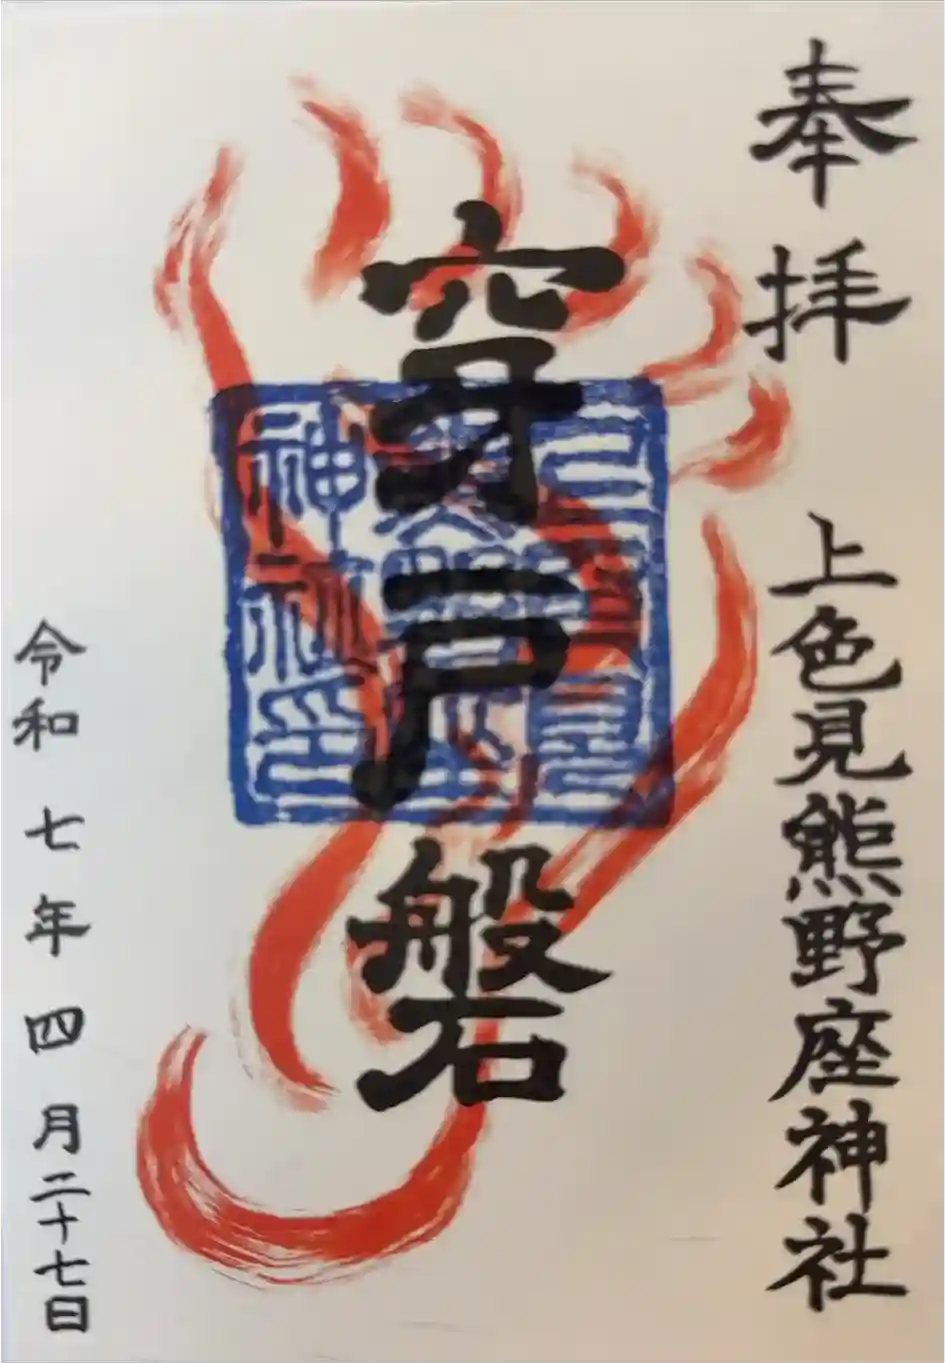 奉拝
上色見熊野座神社
穿戸磐石
上色見熊野座神社印
令和七年四月二十七日